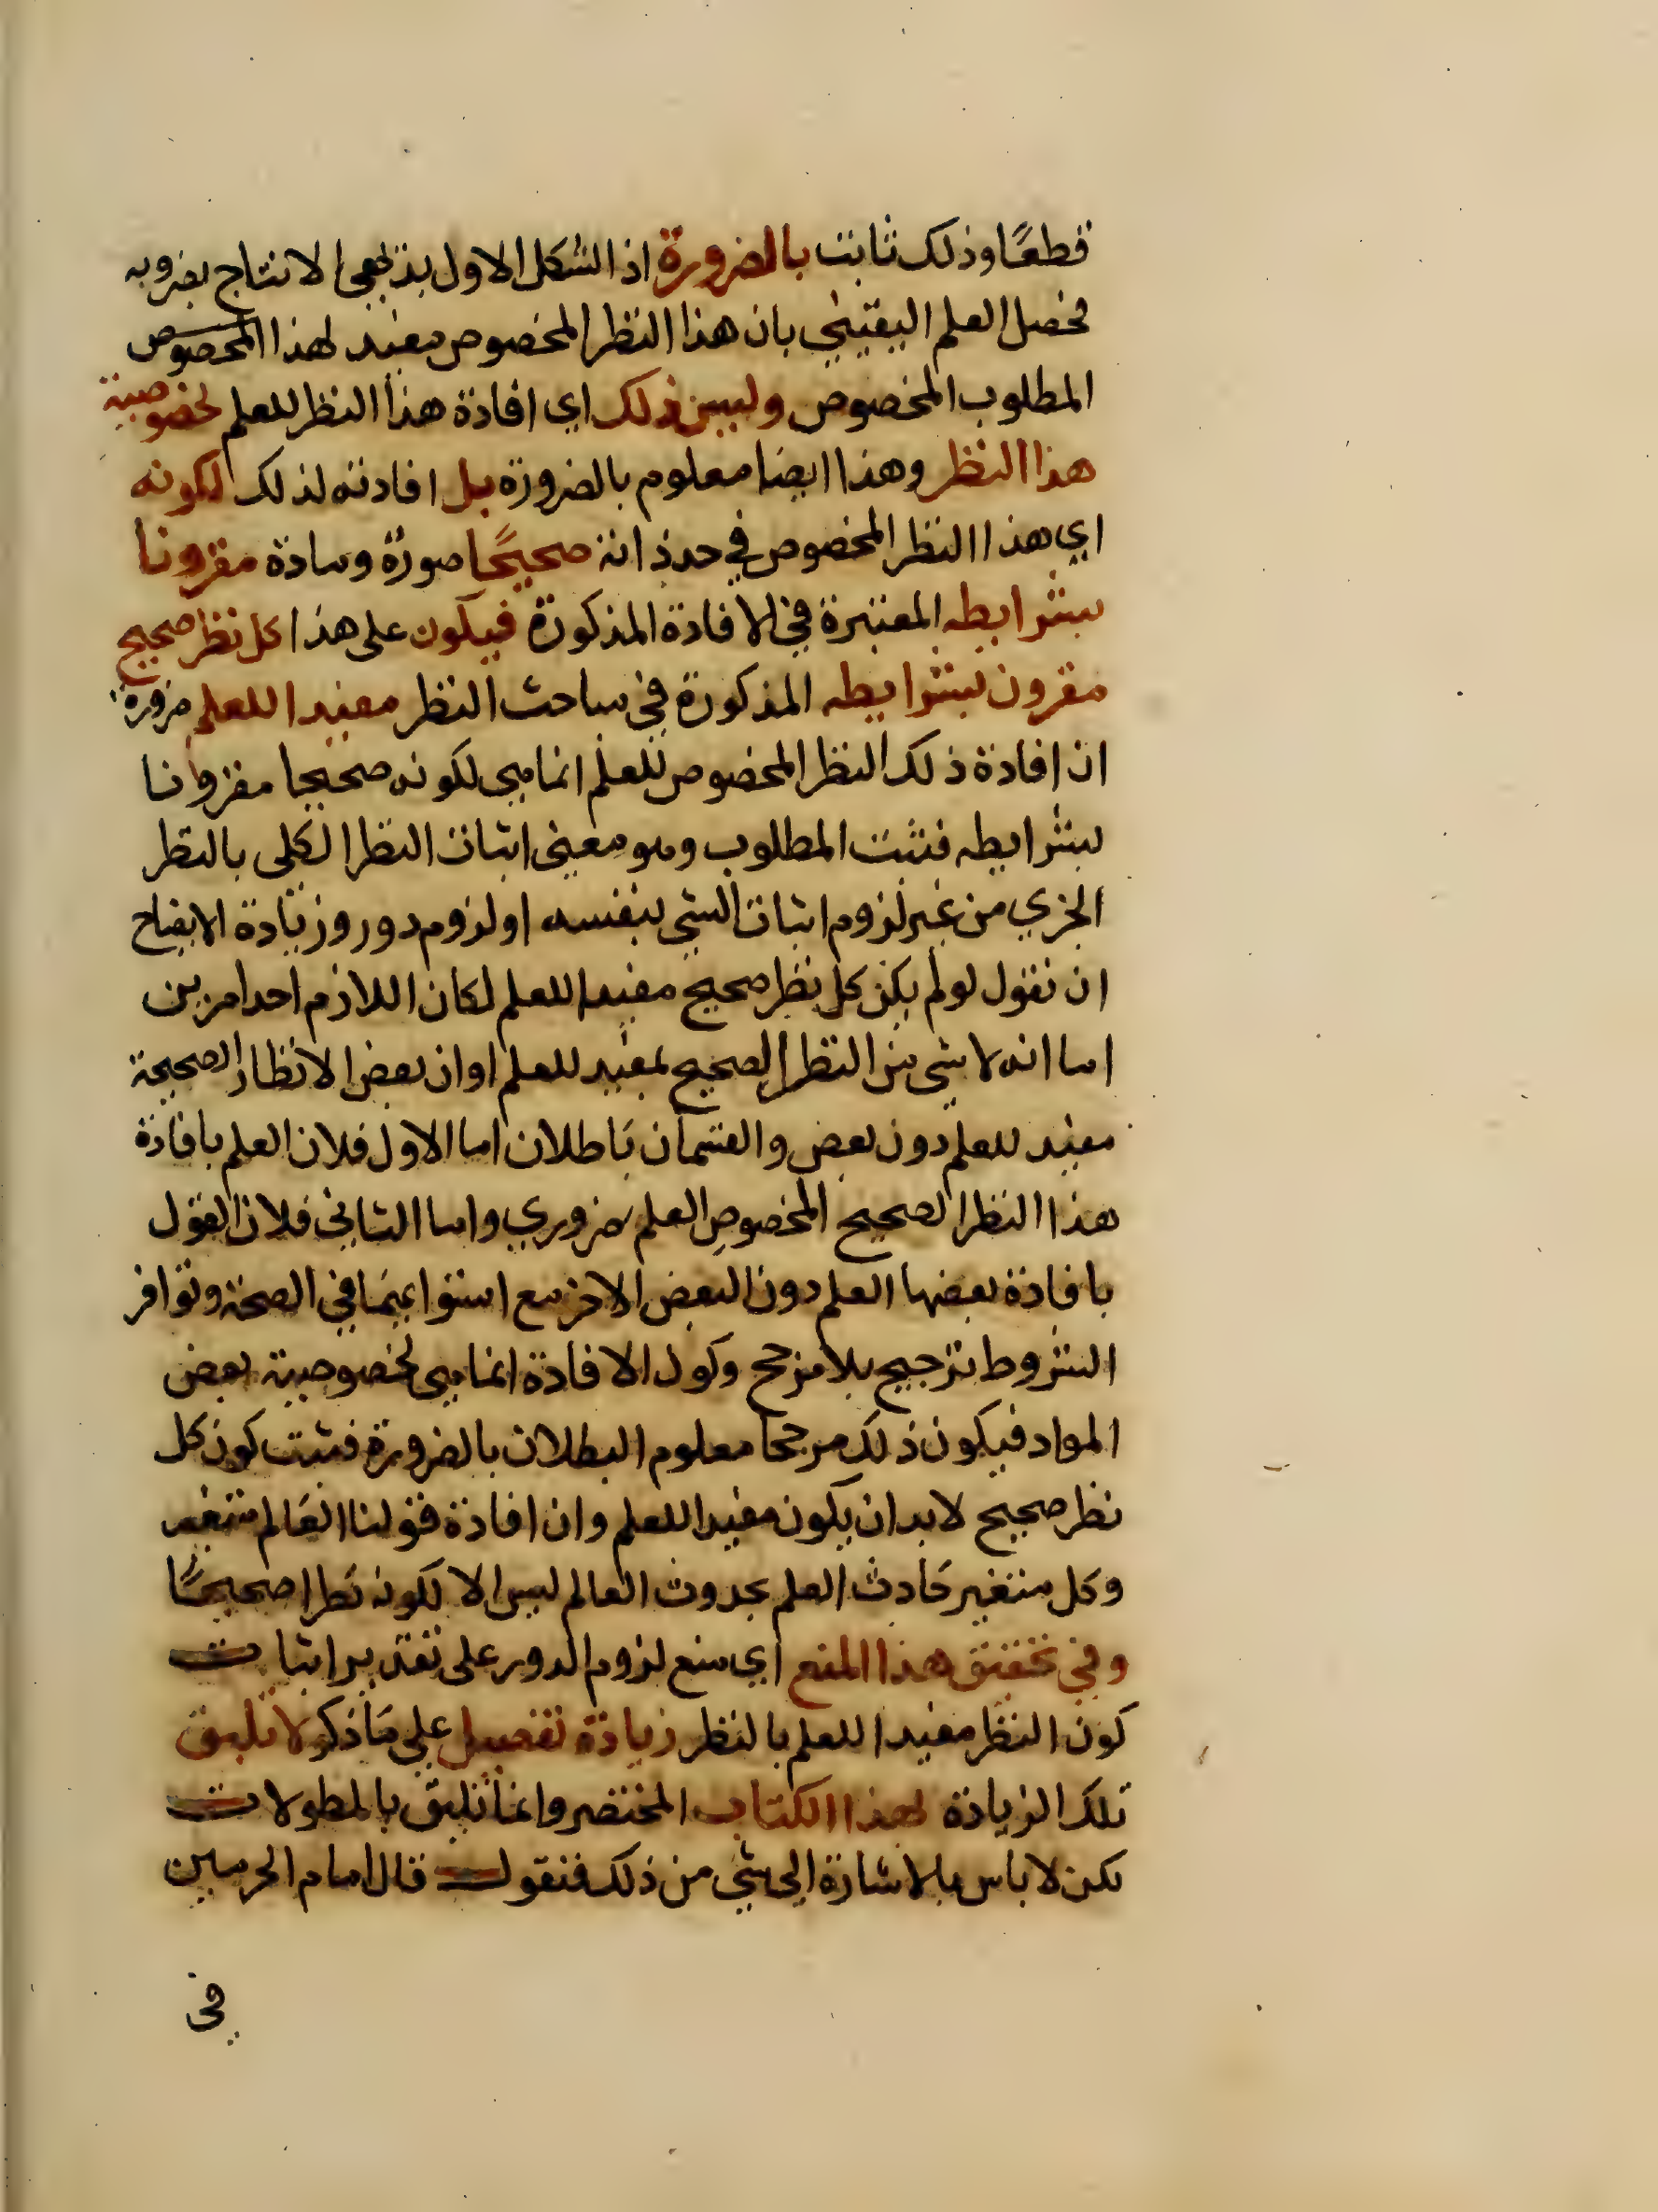 قطعًا وذلك ثابت بالضرورة اذ الشكل الاول بديهي الانتاج بضروبه
فحصل العلم اليقيني بان هذا النظر المخصوص مفيد لهذا المخصوص
المطلوب المخصوص وليس ذلك اي افادة هذا النظر للعلم لخصوصية
هذا النظر وهذا ايضا معلوم بالضرورة بل افادته لذلك لكونه
اي هذا النظر المخصوص في حد ذاته صحيحًا صورة ومادة مقرونا
بشرايطه المعتبرة في الافادة المذكورة فيكون على هذا كل نظر صحيح
مقرون بشرايطه المذكورة في مباحث النظر مفيدا للعلم ضرورة
ان افادة ذلك النظر المخصوص للعلم انما هي لكونه صحيحا مقرونا
بشرايطه فثبت المطلوب وهو معنى اثبات النظر الكلى بالنظر
الجزي من غير لزوم اثبات الشي بنفسه او لزوم دور وزيادة الايضاح
ان نقول لو لم يكن كل نظر صحيح مفيدا للعلم لكان اللازم احد امرين
اما انه لا شي من النظر الصحيح بمفيد للعلم او ان بعض الانظار الصحيحة
مفيد للعلم دون بعض والقسمان باطلان اما الاول فلان العلم بافادة
هذا النظر الصحيح المخصوص العلم ضروري واما الثاني فلان القول
بافادة بعضها العلم دون البعض الاخر مع استوايهما في الصحة وتوافر
الشروط ترجيح بلا مرجح وكون الافادة انما هي لخصوصية بعض
المواد فيكون ذلك مرجحا معلوم البطلان بالضرورة فثبت كون كل
نظر صحيح لا بد ان يكون مفيدا للعلم وان افادة قولنا العالم متغير
وكل متغير حادث العلم بحدوث العالم ليس الا لكونه نظرا صحيحًا
وفي تحقيق هذا المنع اي منع لزوم الدور على تقدير اثبات
كون النظر مفيدا للعلم بالنظر زيادة تفصيل على ما ذكر لا تليق
تلك الزيادة لهذا الكتاب المختصر وانما تليق بالمطولات
لكن لا باس بالاشارة الى شي من ذلك فنقول قال امام الحرمين
في